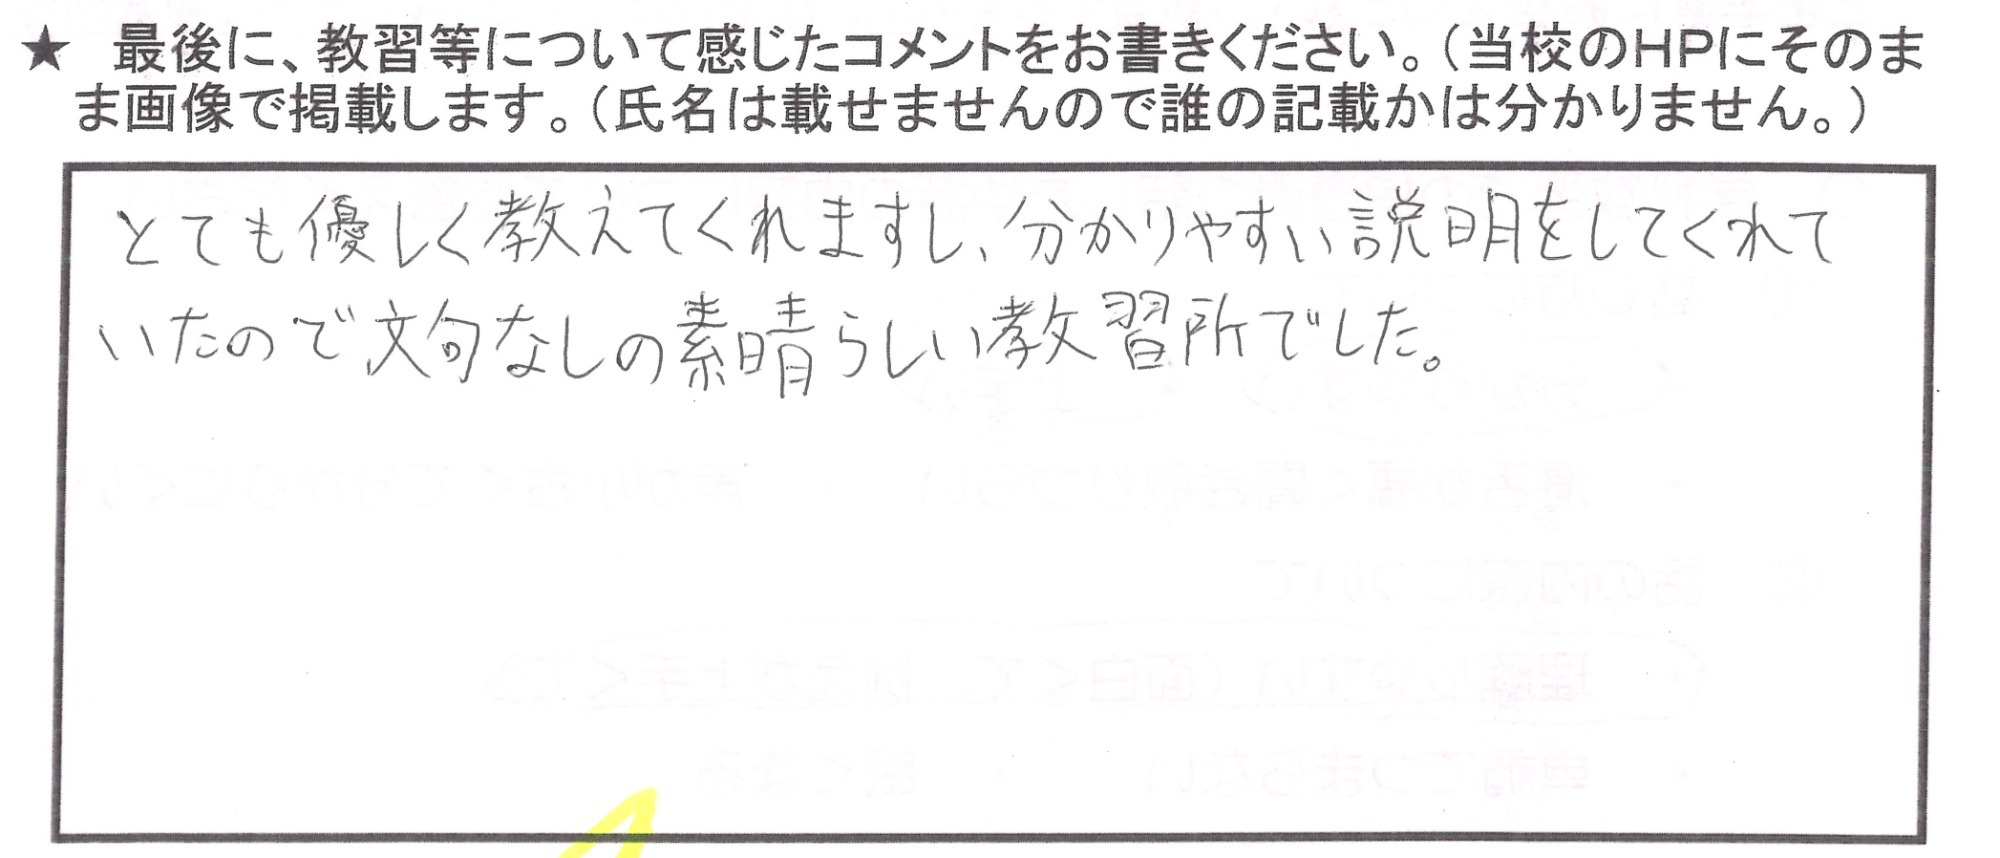 ★ 最後に、教習等について感じたコメントをお書きください。(当校のHPにそのま
ま画像で掲載します。(氏名は載せませんので誰の記載かは分かりません。)
とても優しく教えてくれますし、分かりやすい説明をしてくれて
いたので文句なしの素晴らしい教習所でした。